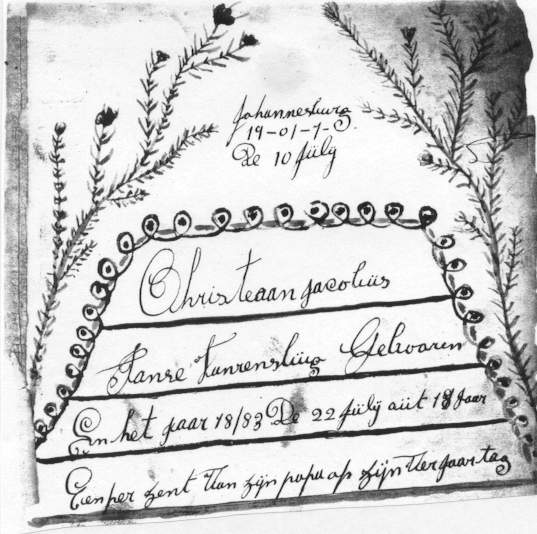 Johannesburg
19-01-7-
De 10 Jülÿ
Christeaan jacobüs
Janse Vanrensbürg Gebooren
En het jaar 18/83 De 22 jülÿ aüt 18 Jaar
Eenper zent Van zÿn papa op zÿn Verjaar tag